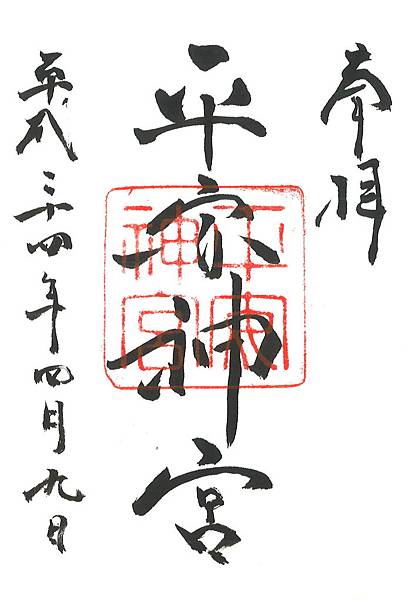 奉拝
平安神宮
平安
神宮
平成二十四年四月九日